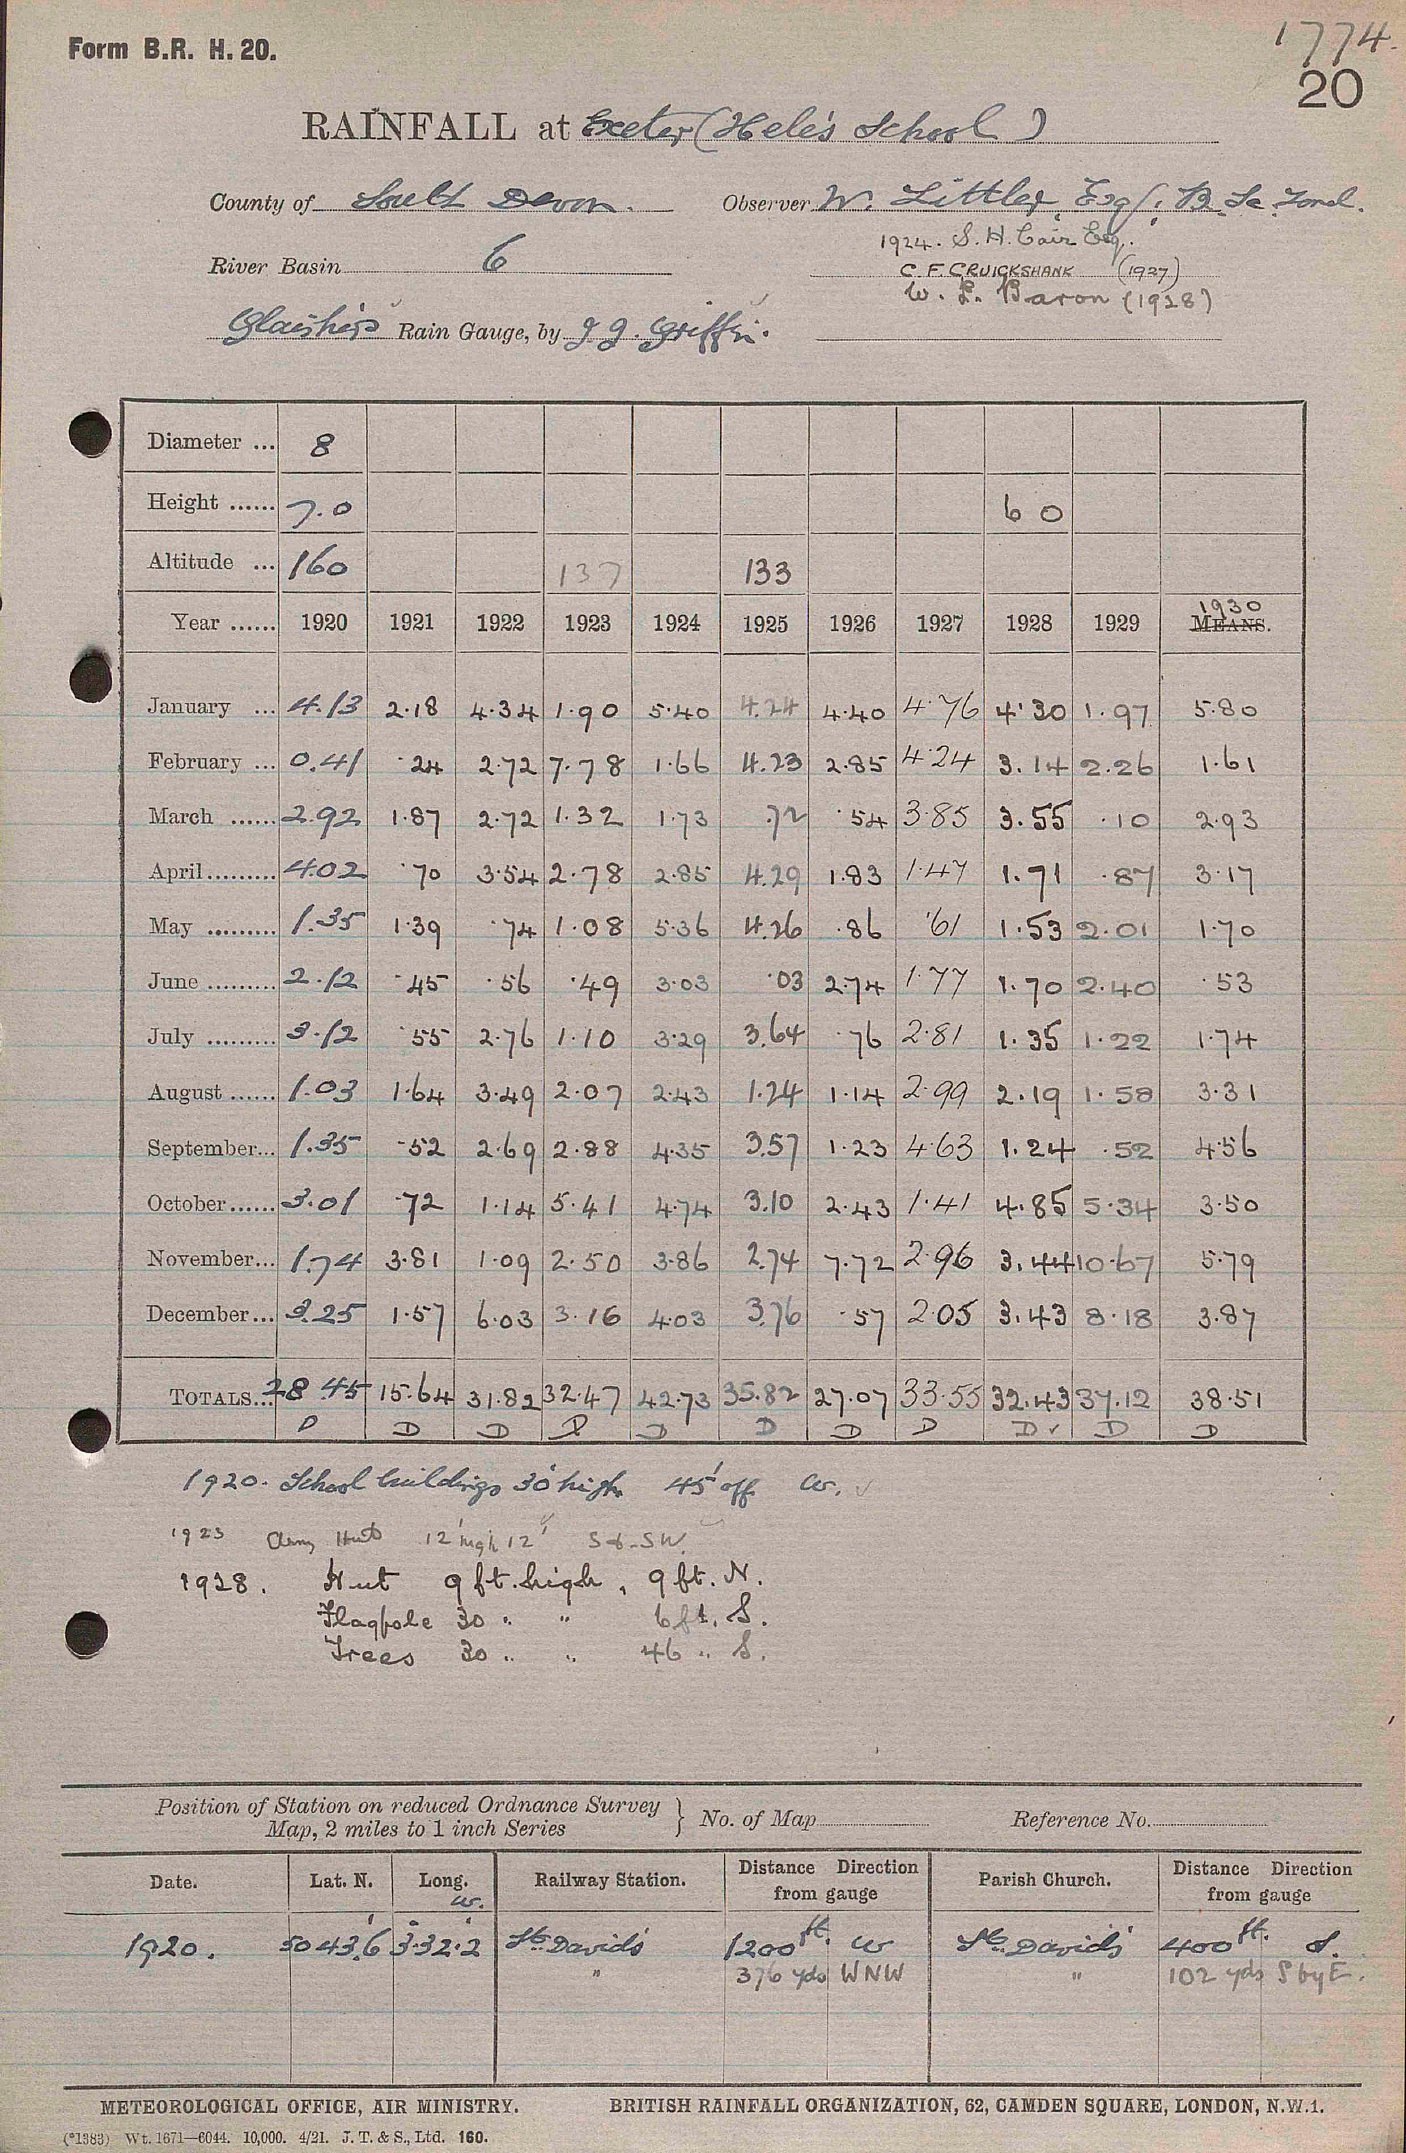 Form B.R. H. 20.
1774.
20
RAINFALL at Exeter (Hele's School)
County of South Devon. Observer W. Littler, Esq., B.Sc. Lond.
1924. S. H. Cair Esq.
River Basin 6
C. F. CRUICKSHANK (1927)
W. L. Baron (1928)
Glaisher's Rain Gauge, by J. J. Griffin.
Diameter ... 8
Height ...... 7.0 6 0
Altitude ... 160 137 133
1930
Year ...... 1920 1921 1922 1923 1924 1925 1926 1927 1928 1929 MEANS.
January ... 4.13 2.18 4.34 1.90 5.40 4.24 4.40 4.76 4.30 1.97 5.80
February ... 0.41 .24 2.72 7.78 1.66 4.23 2.85 4.24 3.14 2.26 1.61
March ...... 2.92 1.87 2.72 1.32 1.73 .72 .54 3.85 3.55 .10 2.93
April ......... 4.02 .70 3.54 2.78 2.85 4.29 1.83 1.47 1.71 .87 3.17
May ......... 1.35 1.39 .74 1.08 5.36 4.26 .86 .61 1.53 2.01 1.70
June ......... 2.12 .45 .56 .49 3.03 .03 2.74 1.77 1.70 2.40 .53
July ......... 3.12 .55 2.76 1.10 3.29 3.64 .76 2.81 1.35 1.22 1.74
August ...... 1.03 1.64 3.49 2.07 2.43 1.24 1.14 2.99 2.19 1.58 3.31
September... 1.35 .52 2.69 2.88 4.35 3.57 1.23 4.63 1.24 .52 4.56
October ...... 3.01 .72 1.14 5.41 4.74 3.10 2.43 1.41 4.85 5.34 3.50
November... 1.74 3.81 1.09 2.50 3.86 2.74 7.72 2.96 3.44 10.67 5.79
December... 3.25 1.57 6.03 3.16 4.03 3.76 .57 2.05 3.43 8.18 3.87
TOTALS... 28.45 15.64 31.82 32.47 42.73 35.82 27.07 33.55 32.43 37.12 38.51
D D D D D D D D D ✓ D D
1920. School buildings 30' high 45' off W. ✓
1923 Army Hut 12' high 12' S & SW.
1928. Hut 9 ft. high, 9 ft. N.
Flagpole 30 " " 6 ft. S.
Trees 30 " " 46 " S.
Position of Station on reduced Ordnance Survey
Map, 2 miles to 1 inch Series } No. of Map Reference No.
Date. Lat. N. Long. W. Railway Station. Distance Direction from gauge Parish Church. Distance Direction from gauge
1920. 50 43.6 3.32.2 St. David's 1200 ft. W St. David's 400 ft. S.
" 376 yds WNW " 102 yds S by E.
METEOROLOGICAL OFFICE, AIR MINISTRY. BRITISH RAINFALL ORGANIZATION, 62, CAMDEN SQUARE, LONDON, N.W.1.
(*1383) Wt. 1671—6044. 10,000. 4/21. J. T. & S., Ltd. 160.